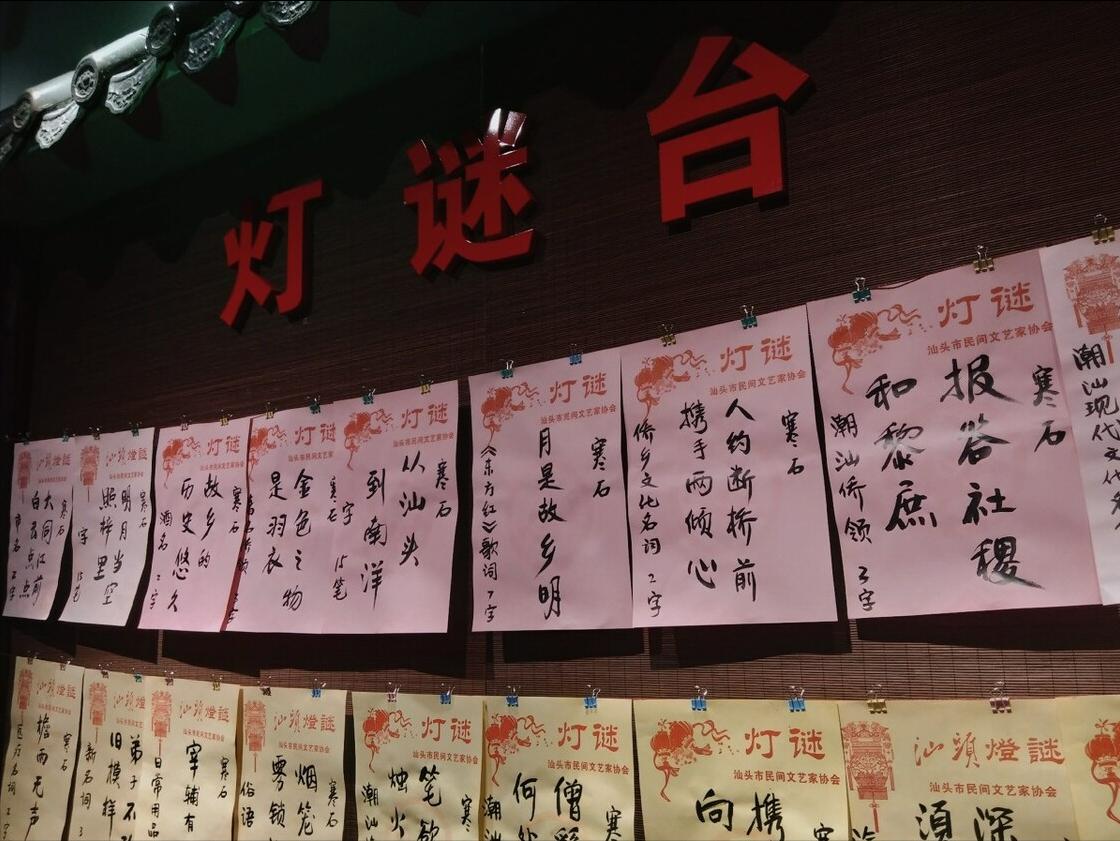 灯谜台
灯谜
汕头市民间文艺家协会
寒石
报答社稷
和黎庶
潮汕侨领 3字
灯谜
汕头市民间文艺家协会
寒石
人约断桥前
携手两倾心
侨乡文化名词 2字
灯谜
汕头市民间文艺家协会
寒石
月是故乡明
《东方红》歌词 7字
灯谜
汕头市民间文艺家协会
寒石
从汕头
到南洋
字 15笔
灯谜
汕头市民间文
金色之物
是羽衣
灯谜
寒石
故乡的
历史悠久
酒名 2字
汕頭燈謎
寒石
明月当空
照梓里
字 15笔
汕頭燈謎
寒石
大同江前
白云点点
市名 2字
潮汕现代文
汕頭燈謎
汕头市民间文艺家协会
深
須
灯谜
汕头市民间文艺家协会
携
向
灯谜
汕头市民间文艺家协会
寒
僧
何
潮
灯谜
汕头市民间文艺家协会
寒
笔
烛火
潮汕
汕頭燈謎
汕头市民间文艺家协会
寒石
烟笼
雾锁
俗语
汕頭燈謎
寒石
宰辅有
日常用品
弟子不
旧模样
新名词 3
汕頭燈謎
寒石
檐雨无声
医疗名词 2字